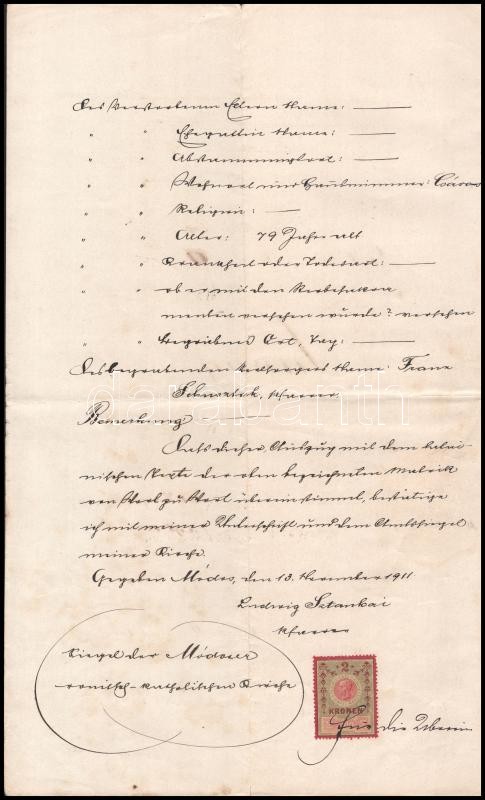 Des Verstorbenen Eltern Name: —
" " Ehegattin Name: —
" " Abstammungsort: —
" " Wohnort und Hausnummer:
" " Religion: —
" " Alter: 79 Jahre alt
" " Krankheit oder Todesart: —
" " ob er mit den Sterbesakra
menten versehen wurde? versehen
" " Begräbnis Ort, Tag: —
Des begrabenden Seelsorgers Name: Franz
Pfarrer.
Bemerkung: —
Dass dieser Auszug mit dem latei-
nischen Texte der oben bezeichneten Matrik
von Wort zu Wort übereinstimmt, bestätige
ich mit meiner Unterschrift und dem Amtssiegel
meiner Kirche.
Gegeben Módos, den 13. November 1911
Ludwig Sztankai
Pfarrer
Siegel der Módoser
römisch-katholischen Kirche
2
KRONEN
Für die Überein
darabanth